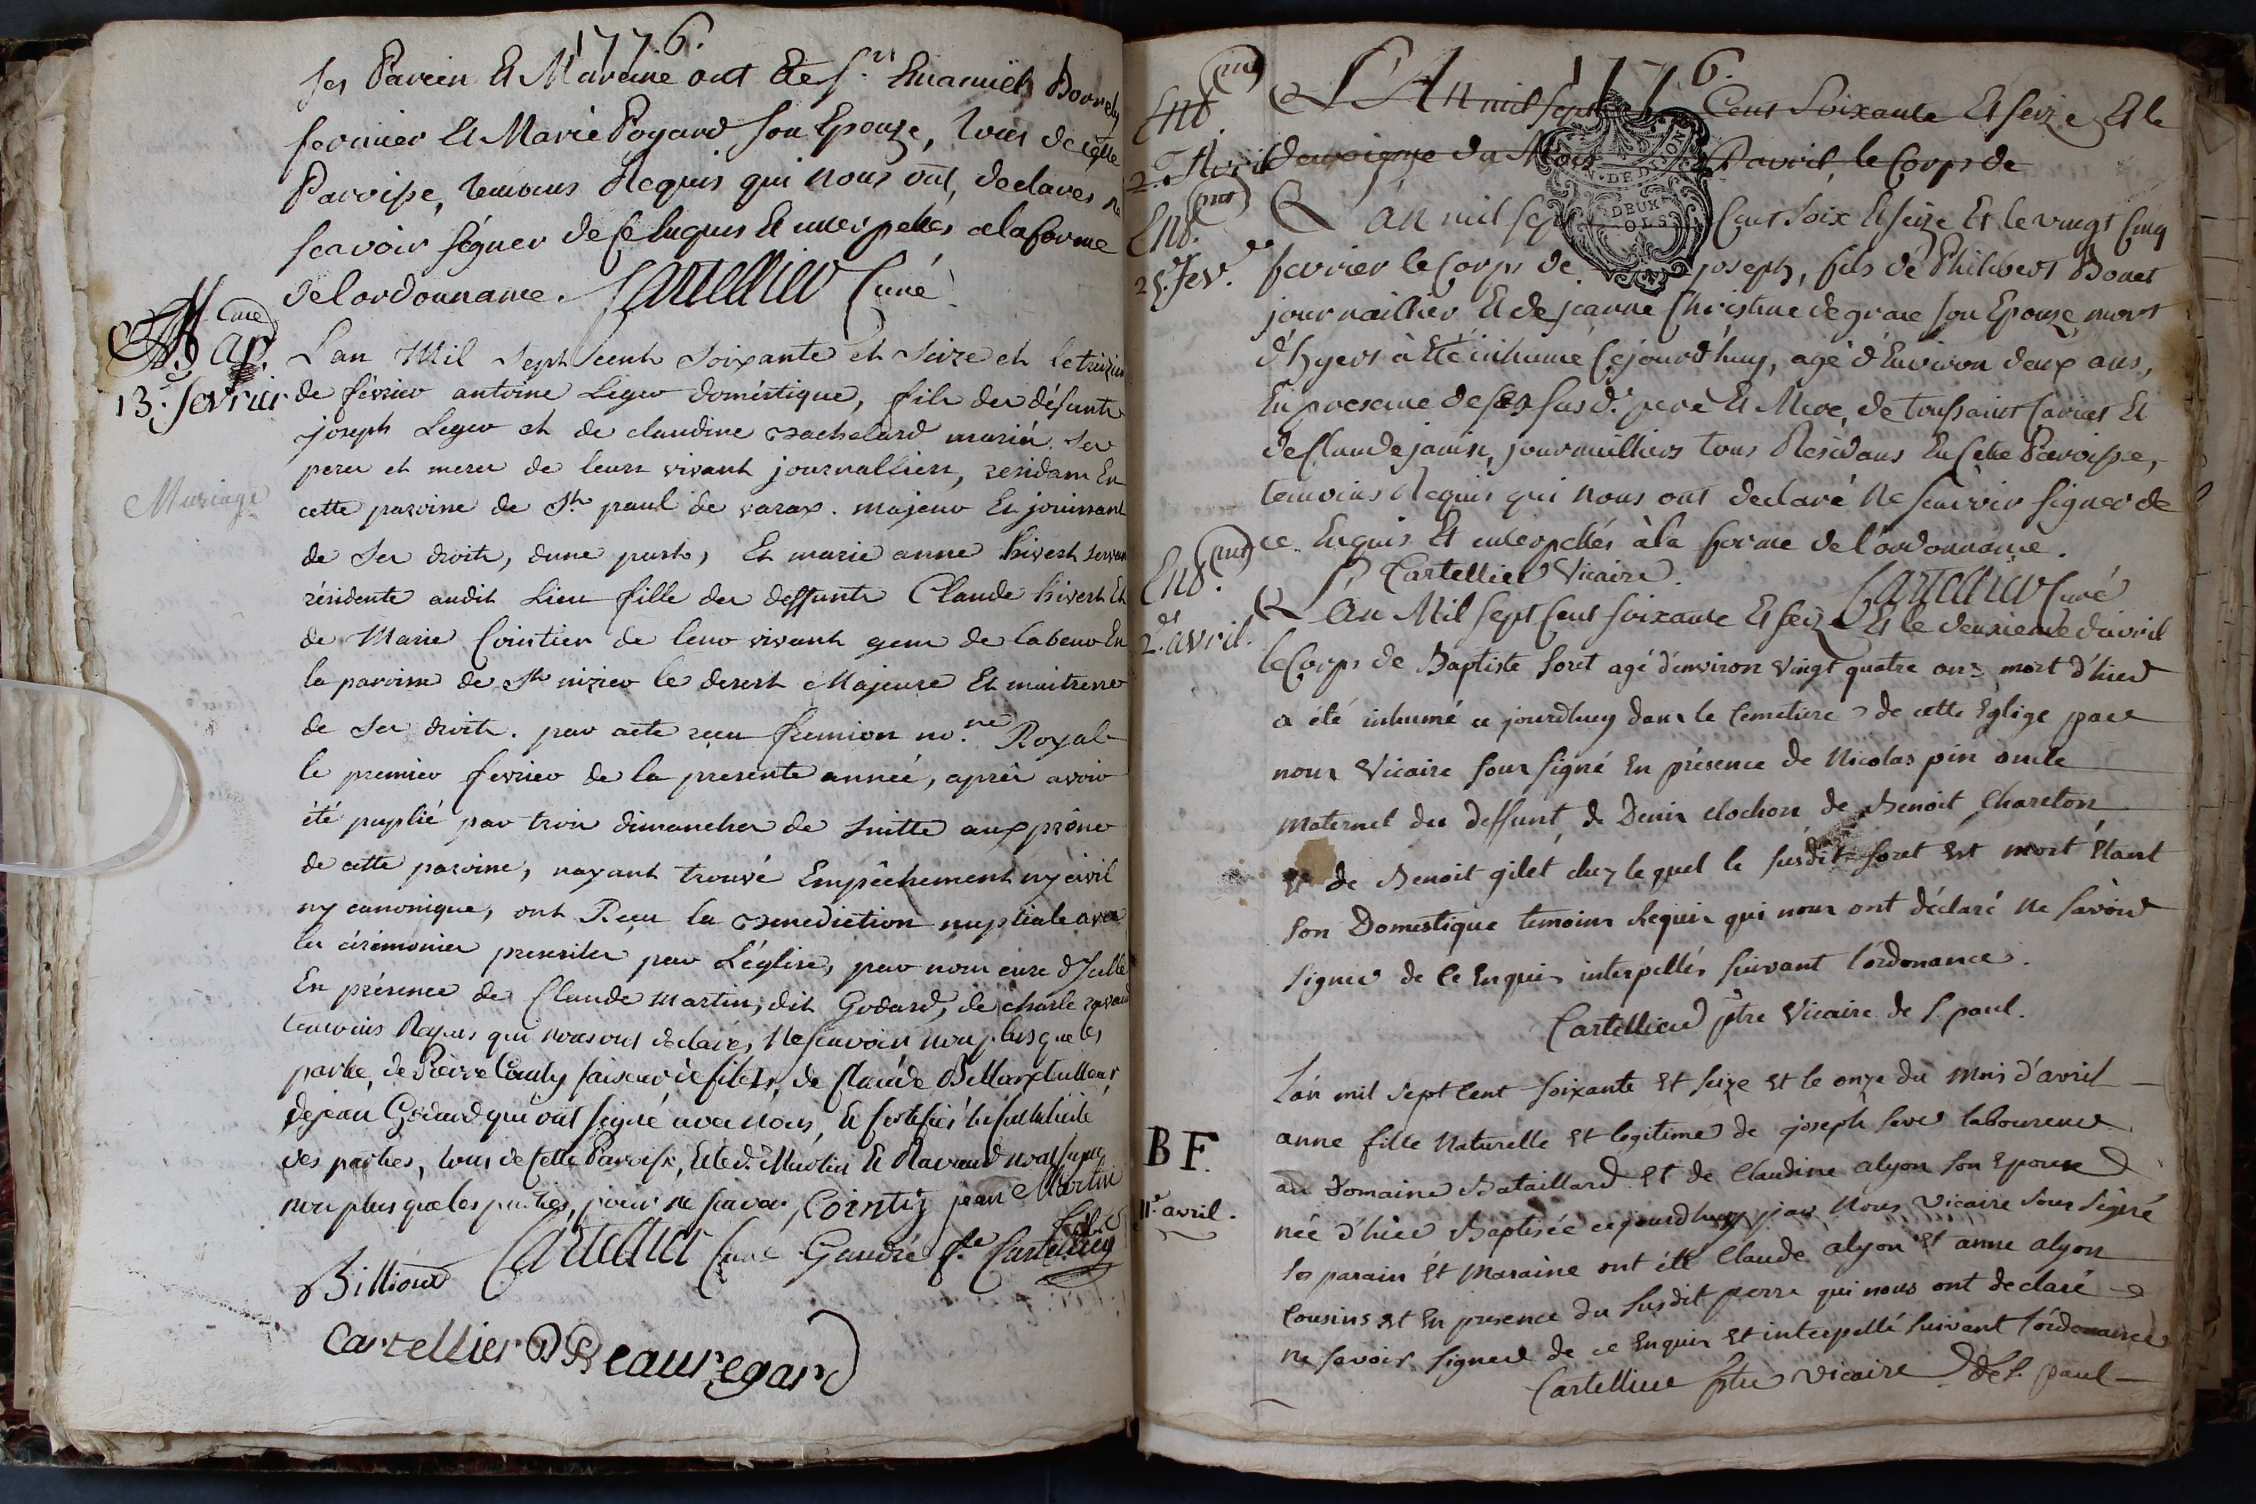 1776.
ses Parein Et Marene ont Ete Sr. Emanuel Borrely
fermier Et Marie Poyard son Epouze, tous de cette
Paroisse, temoins Requis qui nous ont, declarés ne
scavoir signer de ce Enquis Et interpellés a la forme
de l'ordonnance. Cartellier Curé
Mar.
13e. fevrier
Mariage
L'an Mil Sept cent Soixante et Seize et le treizieme
de février antoine Leger doméstique, fils des défunts
joseph Leger et de claudine Bachelard mariés. Ses
peres et meres de leurs vivant journalliers, residant En
cette paroisse de St paul de varax. majeur Et jouissant
de Ses droits, dune part, Et marie anne hivert servante
résidente audit Lieu fille des deffunts Claude hivert Et
de Marie Cointier de leur vivant gens de labeur En
la paroisse de St nizier le desert Majeure Et maitresse
de Ses droits. par acte reçu fremion no.re Royal
le premier fevrier de la presente année, après avoir
été puplié par trois dimanches de Suitte aux prône
de cette paroisse, nayant trouvé Empêchement ny civil
ny canonique, ont Reçu la Benediction nuptiale avec
les cérémonies prescrites par L'église, par nous curé d'Icelle
En présence de Claude martin, dit Godard, de charle ravaud
temoins Requis qui nous ont declarés, Ne scavoir non plus que les
parties, de Pierre Couly faiseur de filets, de Claude Billioux tailleur
de jean Godard qui ont signé avec nous, Et certifiés
des parties, tous de cette Paroisse, Et led. Martin Et Ravaud non signé
non plus que les parties, pour ne scavoir. Cointiz jean Martin
Billioux Cartellier Curé Gaudré f.e Cartellier
Cartellier D Beauregard
1776.
Ent
2e. Avril
L'An mil sept Cent Soixante Et seize Et le
deuxieme du Mois D'avril, le Corps de
Ent.
25e. fev.
L'an mil sept Cent soix Et seize Et le vingt Cinq
fevrier le Corps de joseph, fils de Philibert Bonet
journaillier Et de jeanne Christine degrace son Epouze, mort
d'hyers à Eté inhumé Cejourd'huy, agé d'Environ deux ans,
En presence de ses susd. pere Et Mere, de toussaint Et
de Claude janin, journailliers tous Residans En cette Paroisse,
temoins Requis qui nous ont declaré Ne scavoir signer de
ce Enquis Et interpellés à la forme de l'ordonnance.
Cartellier Vicaire. Cartellier Curé
Ent.
2e. avril.
L'An Mil Sept Cent soixante Et seize Et le deuxieme d'avril
le Corps de Baptiste foret agé d'environ vingt quatre ans mort d'hier
a été inhumé ce jourdhuy dans le Cemetiere de cette Eglige par
nous Vicaire sous signé En présence de Nicolas pin oncle
maternel du deffunt, de Denis clochon de Benoit Chareton
et de Benoit gilet chez lequel le susdit foret Est mort Etant
son Domestique temoins Requis qui nous ont déclaré ne savoir
signer de ce Enquis interpellés suivant l'ordonance.
Cartellier ptre Vicaire de S. paul.
BF.
11e. avril.
L'an mil sept Cent soixante et seize et le onze du mois d'avril
anne fille Naturelle et legitime de joseph laboureur
au Domaine Bataillard Et de Claudine alyon son Epouse
née d'hier Baptisée cejourdhuy par Nous Vicaire sous signé
Ses parain et Maraine ont été Claude alyon et anne alyon
Cousins et En presence du susdit perre qui nous ont declaré
ne savoir signer de ce Enquis Et interpellé suivant l'ordonance
Cartellier ptre Vicaire de S. paul